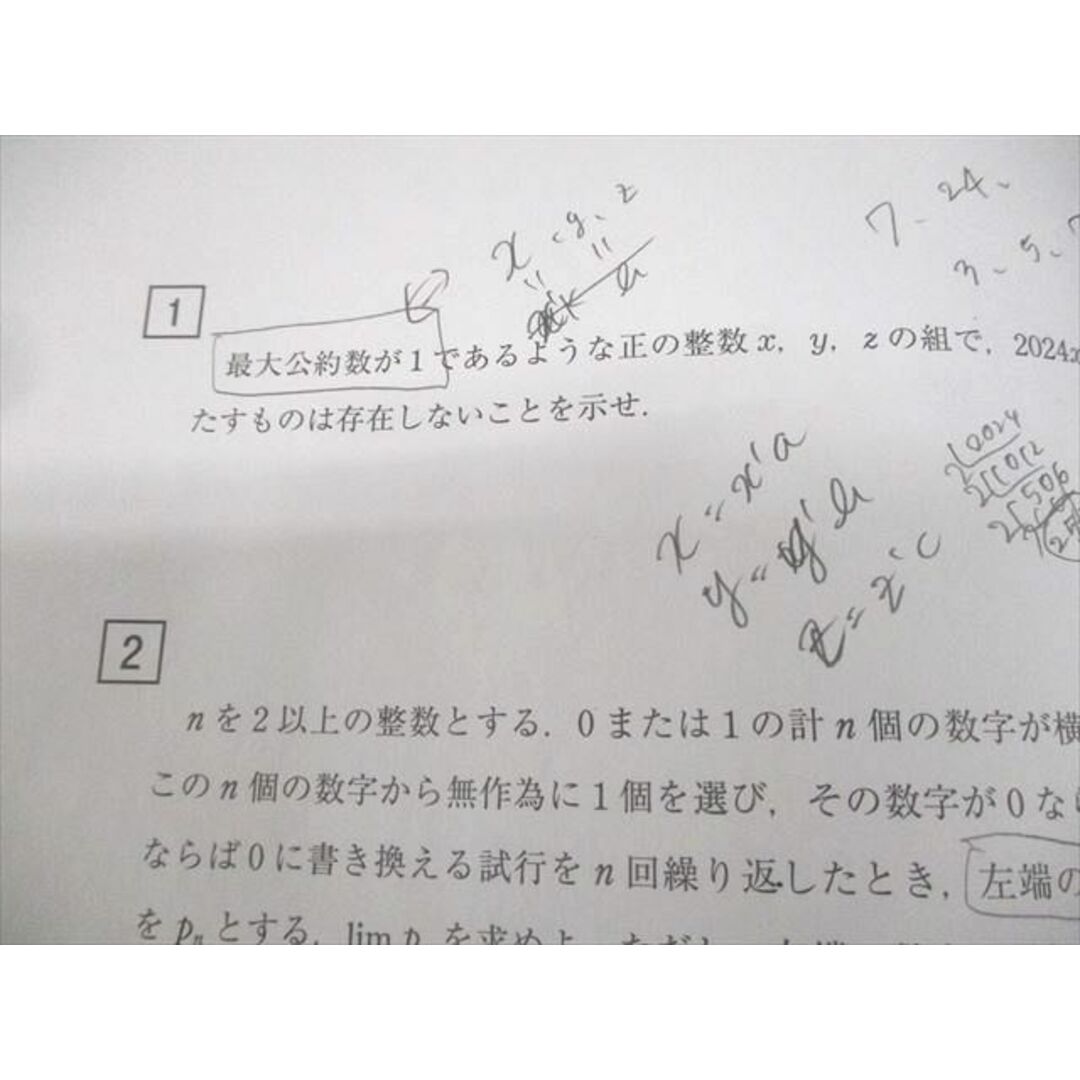 x、y、z
7、24、
3、5、7
1
最大公約数が1であるような正の整数 x, y, z の組で, 2024x
たすものは存在しないことを示せ.
x = x'a
y = y'b
z = z'c
2024
1012
506
2
n を2以上の整数とする. 0または1の計 n 個の数字が横
この n 個の数字から無作為に1個を選び, その数字が0な
ならば0に書き換える試行を n 回繰り返したとき, 左端の
を pₙ とする. lim p を求めよ.